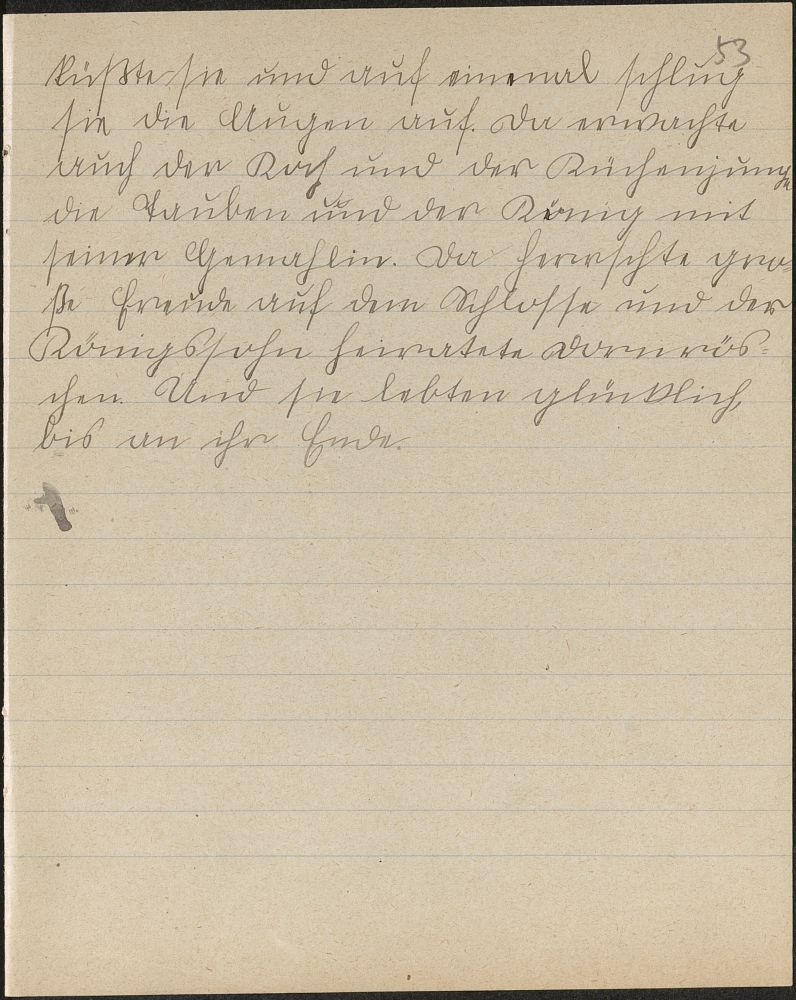 53
küßte sie und auf einmal schlug
sie die Augen auf. Da erwachte
auch der Koch und der Küchenjunge
die Tauben und der König mit
seiner Gemahlin. Da herrschte gro-
ße Freude auf dem Schlosse und der
Königssohn heiratete Dornrös-
chen. Und sie lebten glücklich,
bis an ihr Ende.